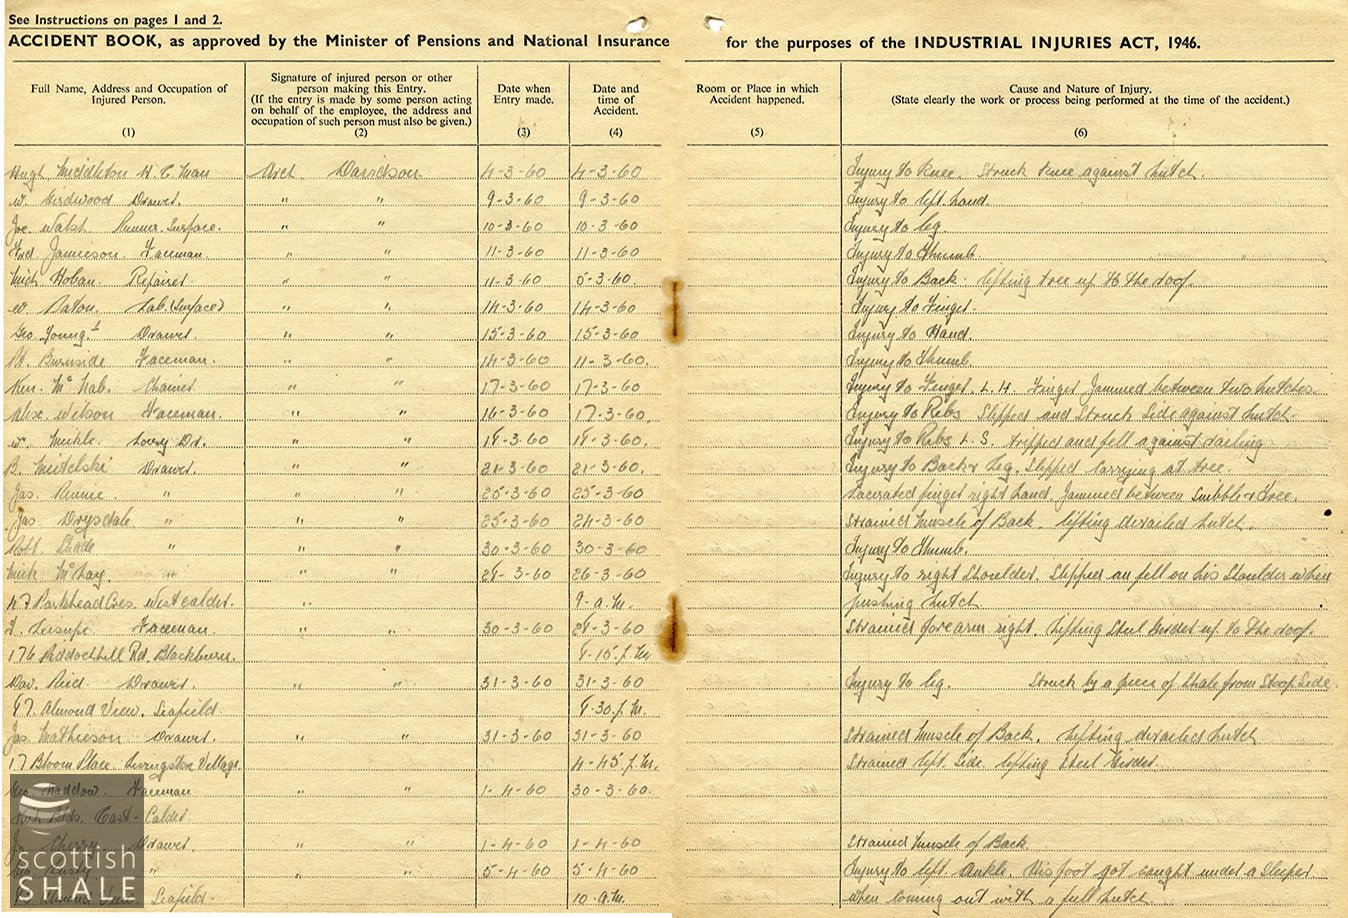 See Instructions on pages 1 and 2.
ACCIDENT BOOK, as approved by the Minister of Pensions and National Insurance for the purposes of the INDUSTRIAL INJURIES ACT, 1946.
Full Name, Address and Occupation of Injured Person. (1)
Signature of injured person or other person making this Entry. (If the entry is made by some person acting on behalf of the employee, the address and occupation of such person must also be given.) (2)
Date when Entry made. (3)
Date and time of Accident. (4)
Room or Place in which Accident happened. (5)
Cause and Nature of Injury. (State clearly the work or process being performed at the time of the accident.) (6)
Hugh Middleton H.C. Man Arch Davidson 4-3-60 4-3-60 Injury to Knee. Struck Knee against hutch.
W. Girdwood Drawer. " " 9-3-60 9-3-60 Injury to left hand.
Joe Walsh Runner. Surface. " " 10-3-60 10-3-60 Injury to leg
Fred Jamieson Faceman. " " 11-3-60 11-3-60 Injury to Thumb.
Mich Hoban. Repairer " " 11-3-60 5-3-60. Injury to Back lifting tree up to the roof.
W. Paton. Lab. (Surface) " " 14-3-60 14-3-60 Injury to Finger.
Geo Young. Drawer " " 15-3-60 15-3-60 Injury to Hand.
Burnside Faceman. " " 14-3-60 11-3-60. Injury to Thumb.
Ken. McNab. Chainer " " 17-3-60 17-3-60 Injury to Finger. L.H. Finger Jammed between two hutches.
Alex. Wilson Faceman. " " 16-3-60 17-3-60. Injury to Ribs Slipped and Struck Side against hutch.
W. Meikle. Lorry Dr. " " 18-3-60 18-3-60. Injury to Ribs L.S. tripped and fell against railing
B. Drawer. " " 21-3-60 21-3-60. Injury to Back & leg. Slipped carrying at tree.
Jas. Rennie. " " " 25-3-60 25-3-60 Lacerated finger right hand. Jammed between & Tree.
Jas Drysdale " " " 25-3-60 24-3-60 Strained Muscle of Back. lifting derailed hutch.
Robt. Shade " " " 30-3-60 30-3-60 Injury to Thumb.
Mick McKay. " " " 28-3-60 26-3-60 Injury to right Shoulder. Slipped an fell on his Shoulder when
47 Parkhead Cres. West Calder. " 9-a.m. pushing hutch
F. Faceman. " " 30-3-60 28-3-60 Strained forearm right. lifting Steel Girder up to the roof.
176 Riddochhill Rd. Blackburn. 8-15 p.m
Dav. Reid. Drawer. " " 31-3-60 31-3-60 Injury to leg. Struck by a piece of Shale from Stoop Side.
87. Almond View. Seafield. 8-30 p.m.
Jas Mathieson Drawer. " " 31-3-60 31-3-60 Strained Muscle of Back. lifting derailed hutch
17 Bloom Place. Livingston Village. 4-45 p.m. Strained left Side lifting Steel Girder.
Geo. Haddow. Faceman 1-4-60 30-3-60.
East-Calder
Cherry Drawer. " " 1-4-60 1-4-60 Strained Muscle of Back.
" " " 5-4-60 5-4-60 Injury to left Ankle. His foot got caught under a Sleeper
Seafield. 10 a.m. when coming out with a full hutch.
scottish
SHALE